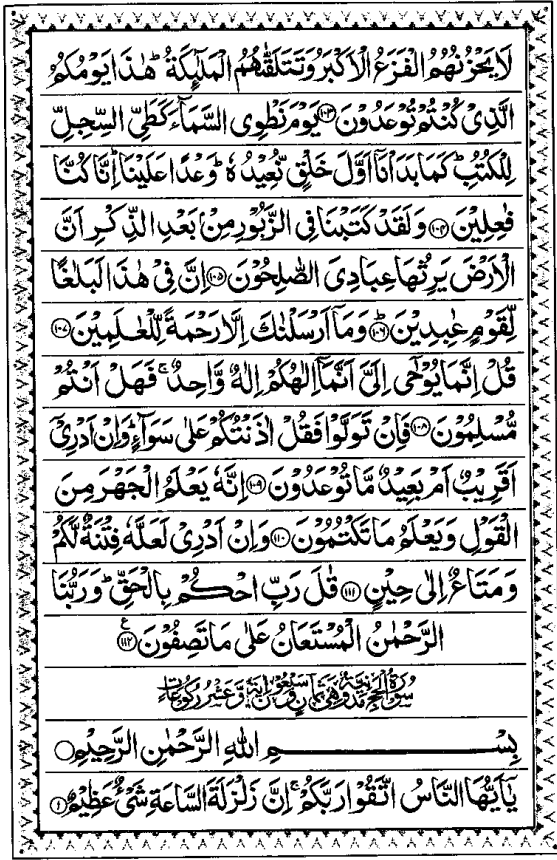 لَا يَحْزُنُهُمُ الْفَزَعُ الْاَكْبَرُ وَتَتَلَقّٰىهُمُ الْمَلٰٓئِكَةُ ؕ هٰذَا يَوْمُكُمُ
الَّذِىْ كُنْتُمْ تُوْعَدُوْنَ ﴿۱۰۳﴾ يَوْمَ نَطْوِى السَّمَآءَ كَطَىِّ السِّجِلِّ
لِلْكُتُبِ ؕ كَمَا بَدَاْنَاۤ اَوَّلَ خَلْقٍ نُّعِيْدُهٗ ؕ وَعْدًا عَلَيْنَا ؕ اِنَّا كُنَّا
فٰعِلِيْنَ ﴿۱۰۴﴾ وَلَقَدْ كَتَبْنَا فِى الزَّبُوْرِ مِنْۢ بَعْدِ الذِّكْرِ اَنَّ
الْاَرْضَ يَرِثُهَا عِبَادِىَ الصّٰلِحُوْنَ ﴿۱۰۵﴾ اِنَّ فِىْ هٰذَا لَبَلٰغًا
لِّقَوْمٍ عٰبِدِيْنَ ﴿۱۰۶﴾ وَمَاۤ اَرْسَلْنٰكَ اِلَّا رَحْمَةً لِّلْعٰلَمِيْنَ ﴿۱۰۷﴾
قُلْ اِنَّمَا يُوْحٰۤى اِلَىَّ اَنَّمَاۤ اِلٰهُكُمْ اِلٰهٌ وَّاحِدٌ ۚ فَهَلْ اَنْتُمْ
مُّسْلِمُوْنَ ﴿۱۰۸﴾ فَاِنْ تَوَلَّوْا فَقُلْ اٰذَنْتُكُمْ عَلٰى سَوَآءٍ ؕ وَاِنْ اَدْرِىْۤ
اَقَرِيْبٌ اَمْ بَعِيْدٌ مَّا تُوْعَدُوْنَ ﴿۱۰۹﴾ اِنَّهٗ يَعْلَمُ الْجَهْرَ مِنَ
الْقَوْلِ وَيَعْلَمُ مَا تَكْتُمُوْنَ ﴿۱۱۰﴾ وَاِنْ اَدْرِىْ لَعَلَّهٗ فِتْنَةٌ لَّكُمْ
وَمَتَاعٌ اِلٰى حِيْنٍ ﴿۱۱۱﴾ قٰلَ رَبِّ احْكُمْ بِالْحَقِّ ؕ وَرَبُّنَا
الرَّحْمٰنُ الْمُسْتَعَانُ عَلٰى مَا تَصِفُوْنَ ﴿۱۱۲﴾ ع
سُوْرَةُ الْحَجِّ مَدَنِيَّةٌ وَّهِىَ ثَمَانٌ وَّسَبْعُوْنَ اٰيَةً وَّعَشْرُ رُكُوْعَاتٍ
بِسْمِ اللّٰهِ الرَّحْمٰنِ الرَّحِيْمِ
يٰۤاَيُّهَا النَّاسُ اتَّقُوْا رَبَّكُمْ ۚ اِنَّ زَلْزَلَةَ السَّاعَةِ شَىْءٌ عَظِيْمٌ ﴿۱﴾